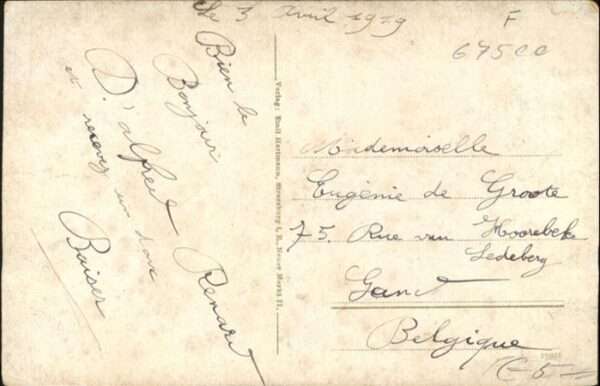 Le 3 Avril 1919
Bien le
Bonjour
D'alfred Renard
et recevez un doux
Baiser
Verlag: Emil Hartmann, Strassburg i. E., Neuer Markt 17.
F
675cc
Mademoiselle
Eugénie de Groote
75. Rue van Hoorebeke
Ledeberg
Gand
Belgique